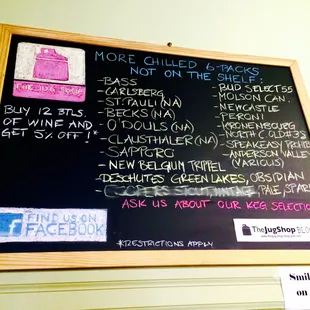 MORE CHILLED 6-PACKS
NOT ON THE SHELF:
THE JUG SHOP
BUY 12 BTLS
OF WINE AND
GET 5% OFF!*
-BASS
-CARLSBERG
-ST. PAULI (NA)
-BECKS (NA)
-O'DOULS (NA)
-CLAUSTHALER (NA)
-SAPPORO
-NEW BELGIUM TRIPPEL
DESCHUTES GREEN LAKES, OBSIDIAN
-COOPERS STOUT, VINTAGE, PALE, SPAR
-BUD SELECT 55
-MOLSON CAN.
-NEWCASTLE
-PERONI
-KRONENBOURG
-NORTH C. OLD #38
-SPEAKEASY PROHIB
-ANDERSON VALLEY
(VARIOUS)
ASK US ABOUT OUR KEG SELECTIO
FIND US ON
FACEBOOK
*RESTRICTIONS APPLY
TheJugShop BLO
Smil
on